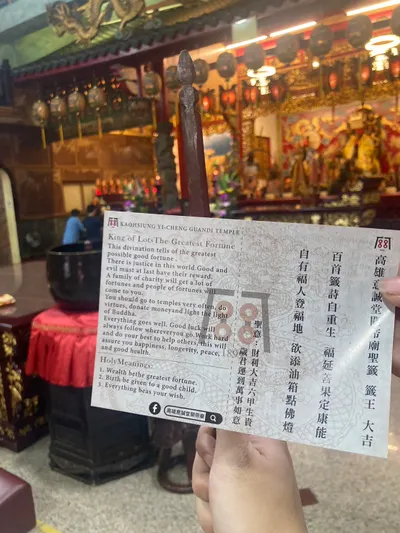 KAOHSIUNG YI-CHENG GUANDI TEMPLE
King of Lots-The Greatest Fortune
This divination tells of the greatest
possible good fortune.
There is justice in this world. Good and
evil must at last have their reward.
A family of charity will get a lot of
fortunes and people of fortunes will
come to you.
You should go to temples very often, do
virtues, donate money and light the light
of Buddha.
Everything goes well. Good luck will
always follow wherever you go. Work hard
and do your best to help others, this will
assure you happiness, longevity, peace,
and good health.
Holy Meanings:
1. Wealth be the greatest fortune.
2. Birth be given to a good child.
3. Everything be as your wish.
高雄意誠堂關帝廟
高雄意誠堂關帝廟聖籤 籤王 大吉
百首籤詩自重生 福延善果定康能
自有福人登福地 欲添油箱點佛燈
聖意:財利大吉六甲生貴
歲君運到萬事如意